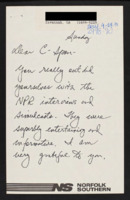 Sunday
Dear C. Spoon
You really outdid
yourselves with the
NPR interviews and
broadcasts. They were
superbly entertaining and
informative. I am
very grateful to you.
NS NORFOLK
SOUTHERN